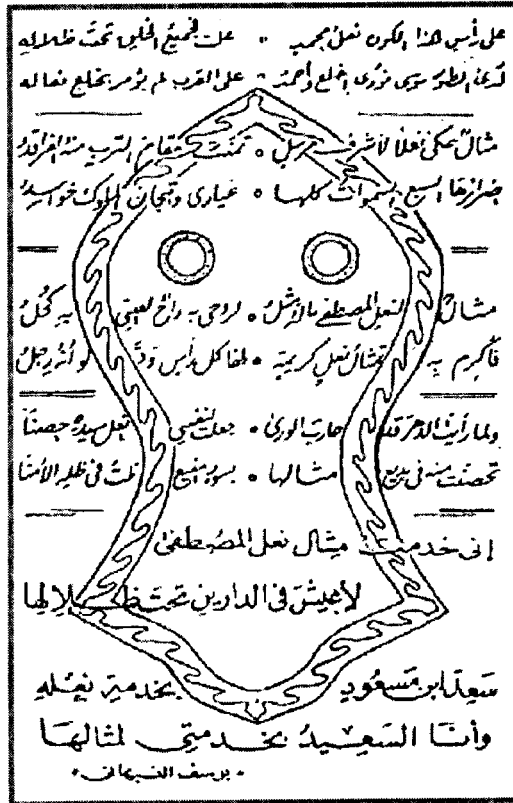 على رأس هذا الكون نعل محمد • علت فجميع الخلق تحت ظلاله
لدى الطور موسى نودى اخلع وأحمد • على القرب لم يؤمر بخلع نعاله
مثال حكى نعلا لأشرف مرسل • تمنت مقام الترب منه الفراقد
ضرائرها السبع السموات كلها • غيارى وتيجان الملوك حواسد
مثال لنعل المصطفى ماله مثل • لروحى به راح لعينى به كحل
فأكرم به تمثال نعل كريمة • لها كل رأس ود لو أنه رجل
ولما رأيت الدهر قد حارب الورى • جعلت لنفسي نعل سيده حصنا
تحصنت منه في بديع مثالها • بسور منيع نلت في ظله الأمنا
إنى خدمت مثال نعل المصطفى
لأعيش في الدارين تحت ظلالها
سعد ابن مسعود بخدمة نعله
وأنا السعيد بخدمتي لمثالها
• يوسف النبهاني •